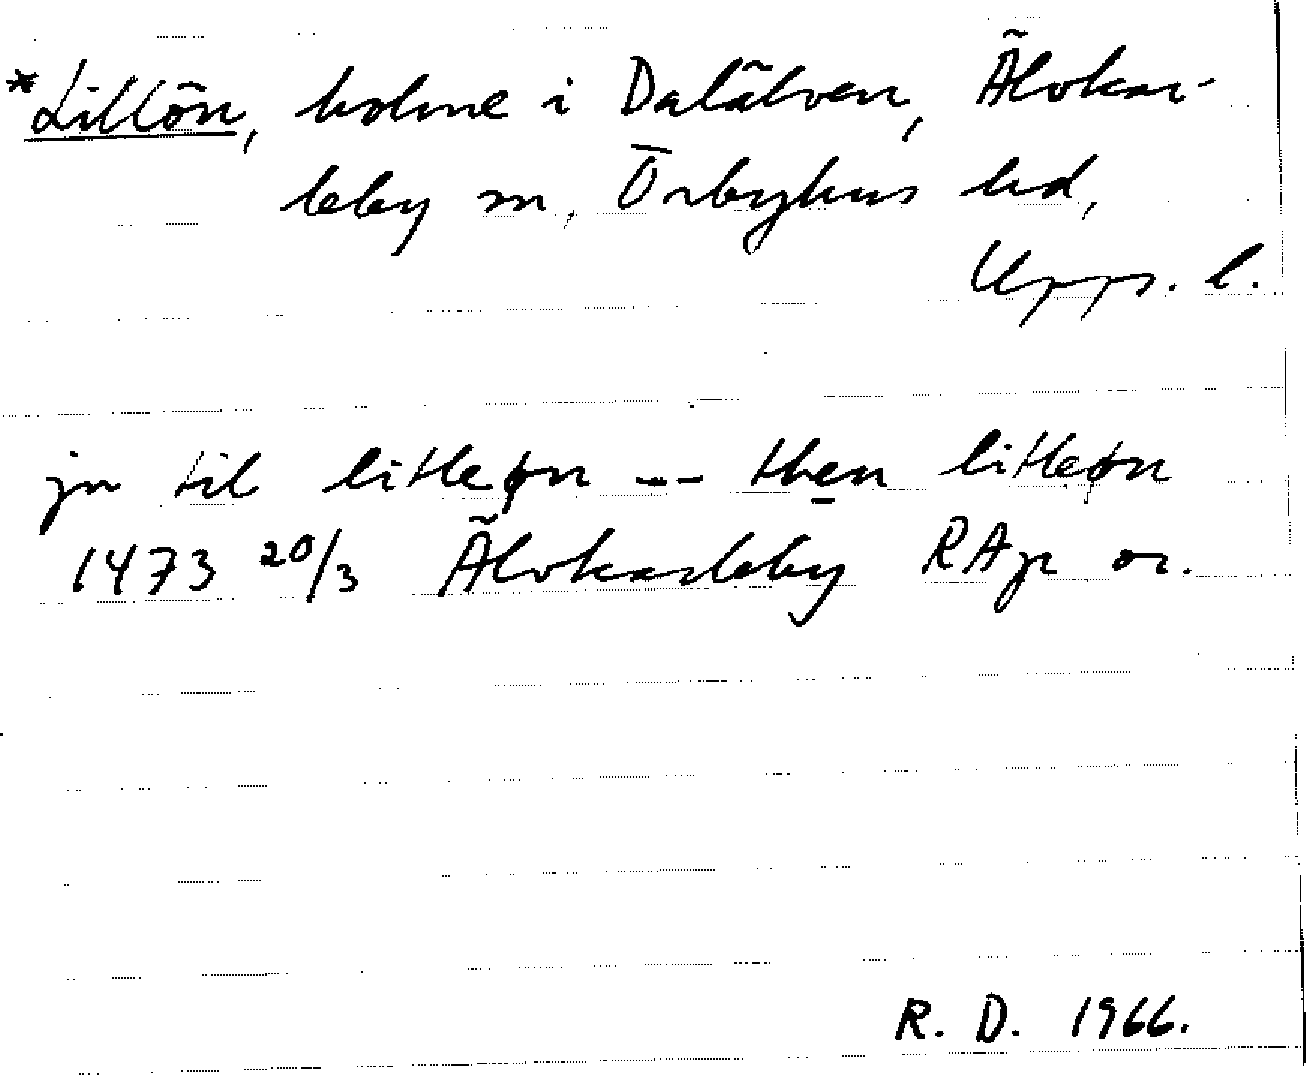 *Lillön, holme i Dalälven, Älvkar-
leby sn, Örbyhus hd,
Upps. l.
jn til litleøn --- then litleøn
1473 20/3 Älvkarleby RAp or.
R. D. 1966.